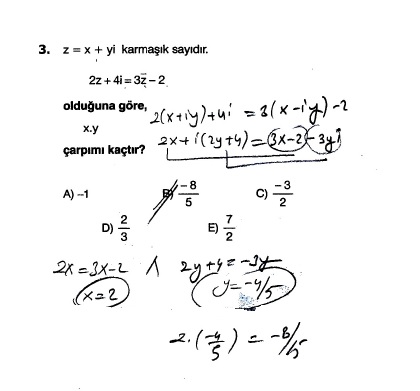 3. z = x + yi karmaşık sayıdır.
2z + 4i = 3z̄ – 2
olduğuna göre, 2(x+iy)+4i = 3(x-iy)-2
x.y
çarpımı kaçtır? 2x+i(2y+4) = 3x-2-3yi
A) –1 B) –8/5 C) –3/2
D) 2/3 E) 7/2
2x = 3x-2 ∧ 2y+4 = -3y
x=2 y=-4/5
2.(-4/5) = -8/5